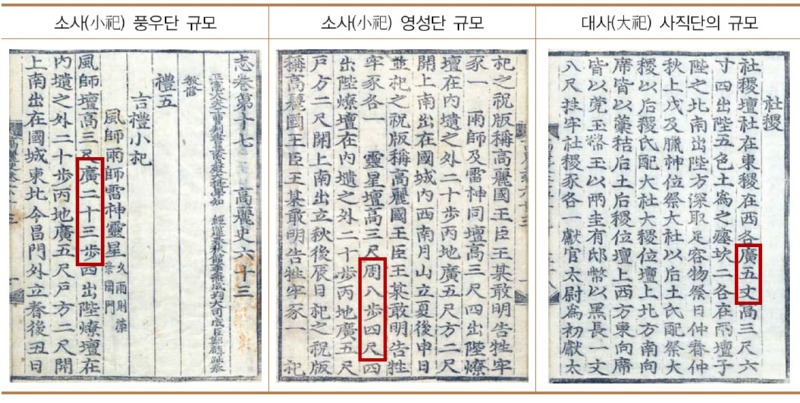 소사(小祀) 풍우단 규모
소사(小祀) 영성단 규모
대사(大祀) 사직단의 규모
志卷第十七 高麗史六十三
正憲大夫工曹判書集賢殿大提學知 經筵春秋館事兼成均大司成臣鄭麟趾奉
敎修
禮五
吉禮小祀
風師雨師雷神靈星 久雨則禜
禜國門
風師壇高三尺廣二十三步四出陛燎壇在
內壝之外二十步丙地廣五尺戶方二尺開
上南出在國城東北令昌門外立春後丑日
祀之祝版稱高麗國王臣王某敢明告牲牢
豕一 雨師及雷神同壇高三尺四出陛燎
壇在內壝之外二十步丙地廣五尺方二尺
開上南出在國城內西南月山立夏後申日
並祀之祝版稱高麗國王臣王某敢明告牲
牢豕各一 靈星壇高三尺周八步四尺四
出陛燎壇在內壝之外二十步丙地廣五尺
戶方二尺開上南出立秋後辰日祀之祝版
稱高麗國王臣王某敢明告牲牢豕一 祀
社稷
社稷壇社在東稷在西各廣五丈高三尺六
寸四出陛五色土爲之瘞坎二各在兩壇子
陛之北南出陛方深取足容物祭日仲春仲
秋上戊及臘神位祭大社以后土氏配祭大
稷以后稷氏配大社大稷位壇上北方南向
席皆以藁秸后土后稷位壇上西方東向席
皆以莞玉幣玉以兩圭有邸幣以黑長一丈
八尺牲牢社稷豕各一獻官太尉爲初獻太